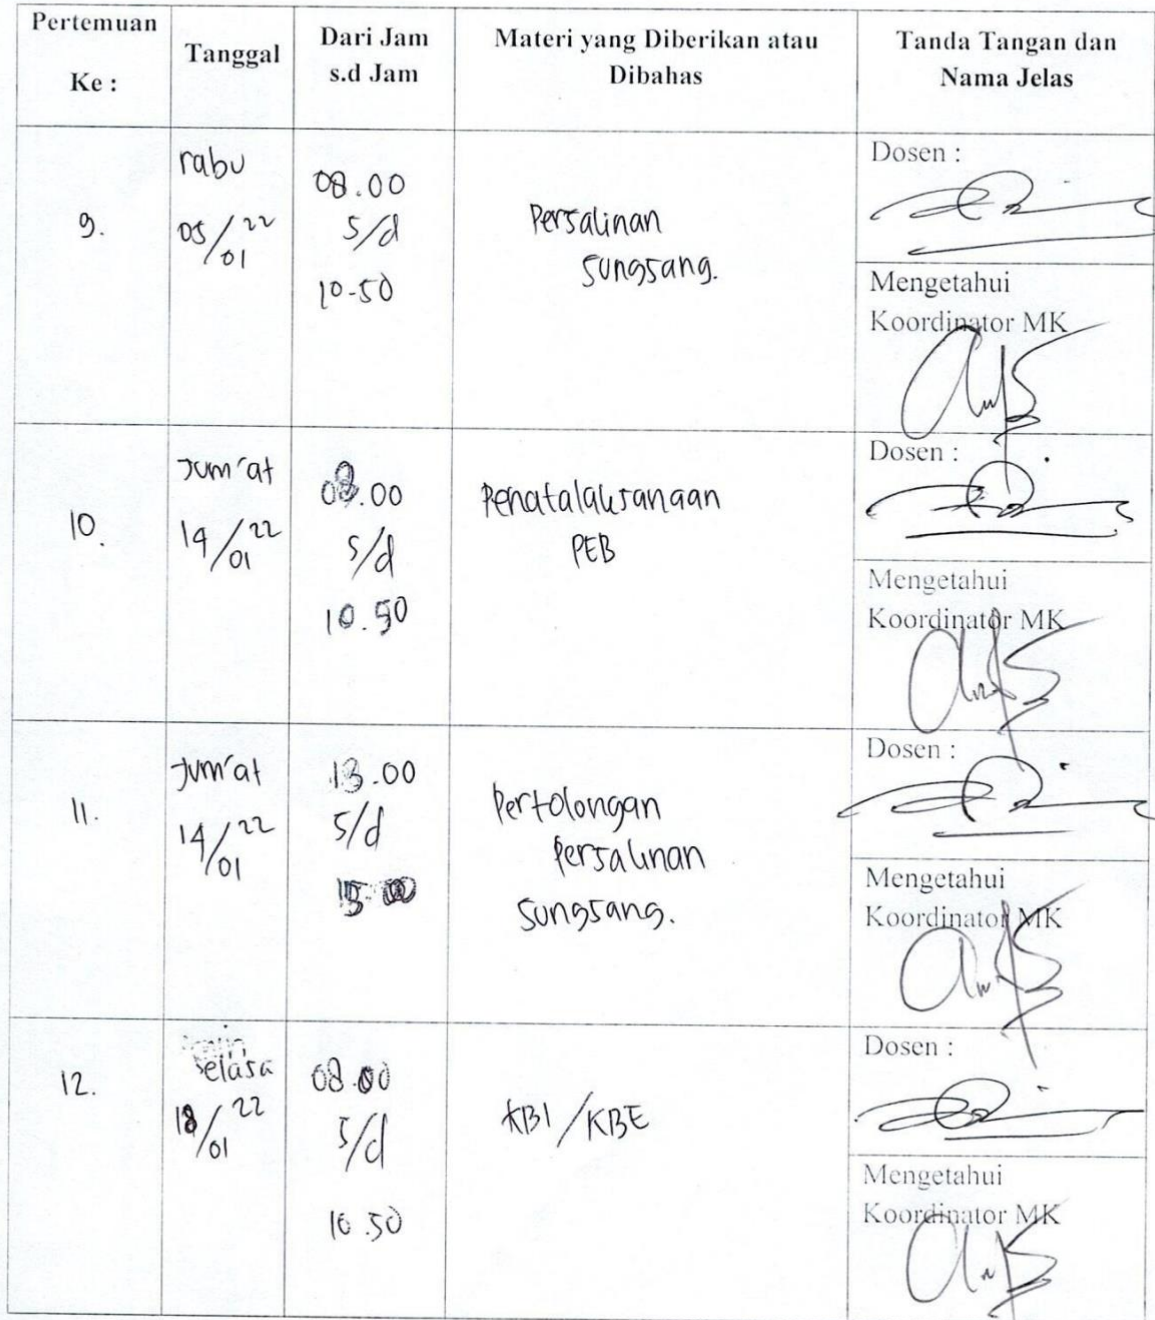 Pertemuan
Ke :
Tanggal
Dari Jam
s.d Jam
Materi yang Diberikan atau
Dibahas
Tanda Tangan dan
Nama Jelas
9.
rabu
05/01 22
08.00
s/d
10.50
Persalinan
sungsang.
Dosen :
Mengetahui
Koordinator MK
10.
Jum'at
14/01 22
08.00
s/d
10.50
Penatalaksanaan
PEB
Dosen :
Mengetahui
Koordinator MK
11.
Jum'at
14/01 22
13.00
s/d
Pertolongan
Persalinan
Sungsang.
Dosen :
Mengetahui
Koordinator MK
12.
selasa
18/01 22
08.00
s/d
10.50
KBI/KBE
Dosen :
Mengetahui
Koordinator MK